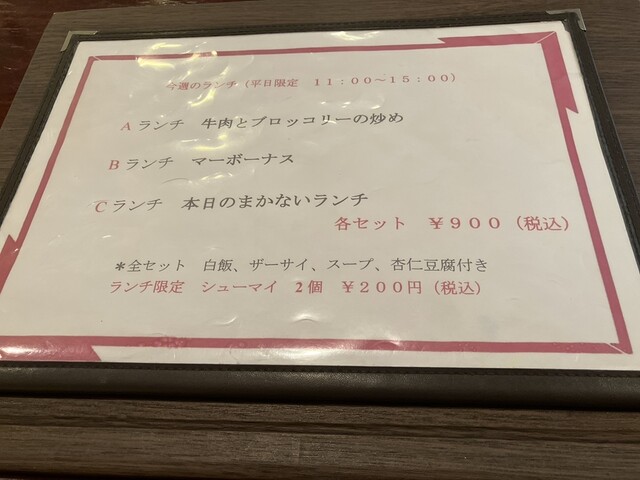 今週のランチ（平日限定　１１：００～１５：００）
Aランチ　牛肉とブロッコリーの炒め
Bランチ　マーボーナス
Cランチ　本日のまかないランチ
各セット　￥９００（税込）
＊全セット　白飯、ザーサイ、スープ、杏仁豆腐付き
ランチ限定　シューマイ　２個　￥２００円（税込）